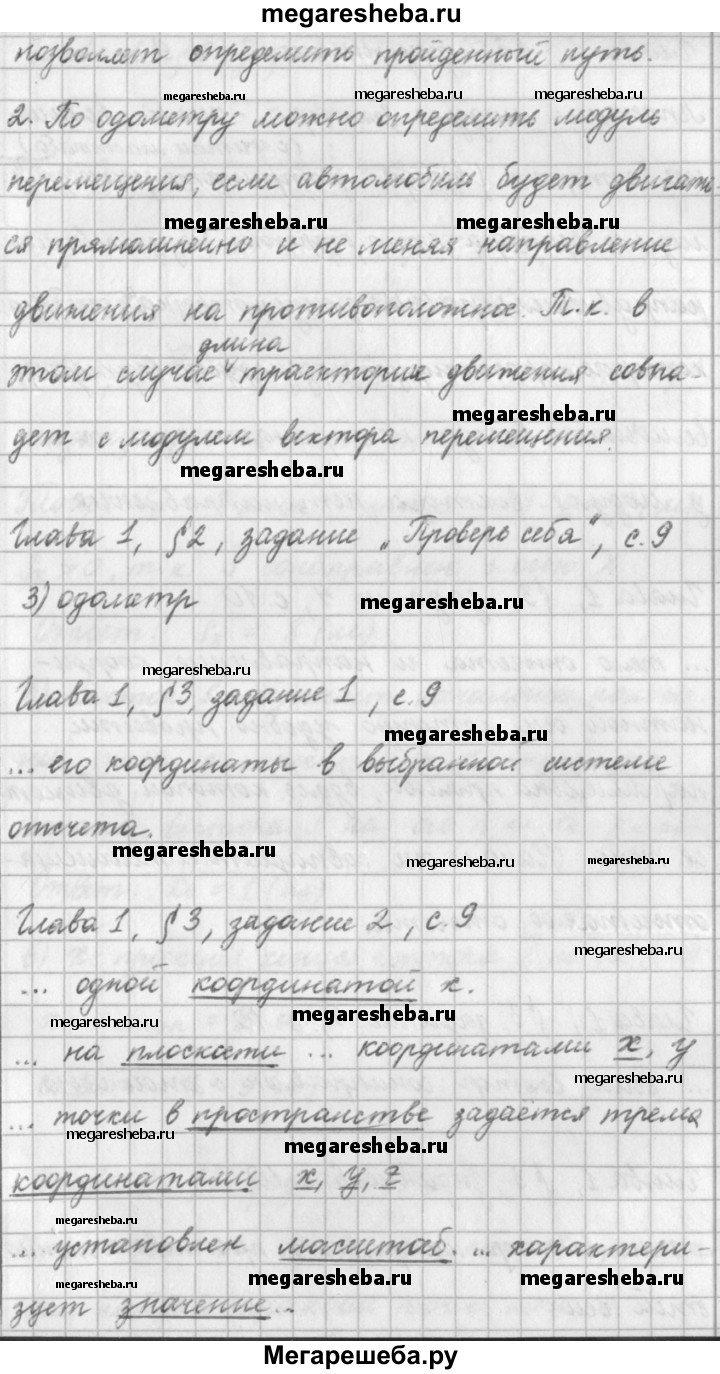 megaresheba.ru
позволяет определить пройденный путь.
megaresheba.ru megaresheba.ru megaresheba.ru
2. По одометру можно определить модуль
перемещения, если автомобиль будет двигать-
megaresheba.ru megaresheba.ru
ся прямолинейно и не меняя направление
движения на противоположное. Т.к. в
длина
этом случае траектории движения совпа-
megaresheba.ru
дет с модулем вектора перемещения.
megaresheba.ru
Глава 1, §2, задание „Проверь себя“, с.9
3) одометр
megaresheba.ru
megaresheba.ru
Глава 1, §3, задание 1, с.9
megaresheba.ru
... его координаты в выбранной системе
отсчета.
megaresheba.ru megaresheba.ru megaresheba.ru
Глава 1, §3, задание 2, с.9
megaresheba.ru
... одной координатой x.
megaresheba.ru megaresheba.ru
... на плоскости ... координатами x, y
megaresheba.ru
... точки в пространстве задаётся тремя
megaresheba.ru megaresheba.ru
координатами x, y, z
megaresheba.ru
... установлен масштаб. ... характери-
megaresheba.ru megaresheba.ru megaresheba.ru
зует значение...
Мегарешеба.ру